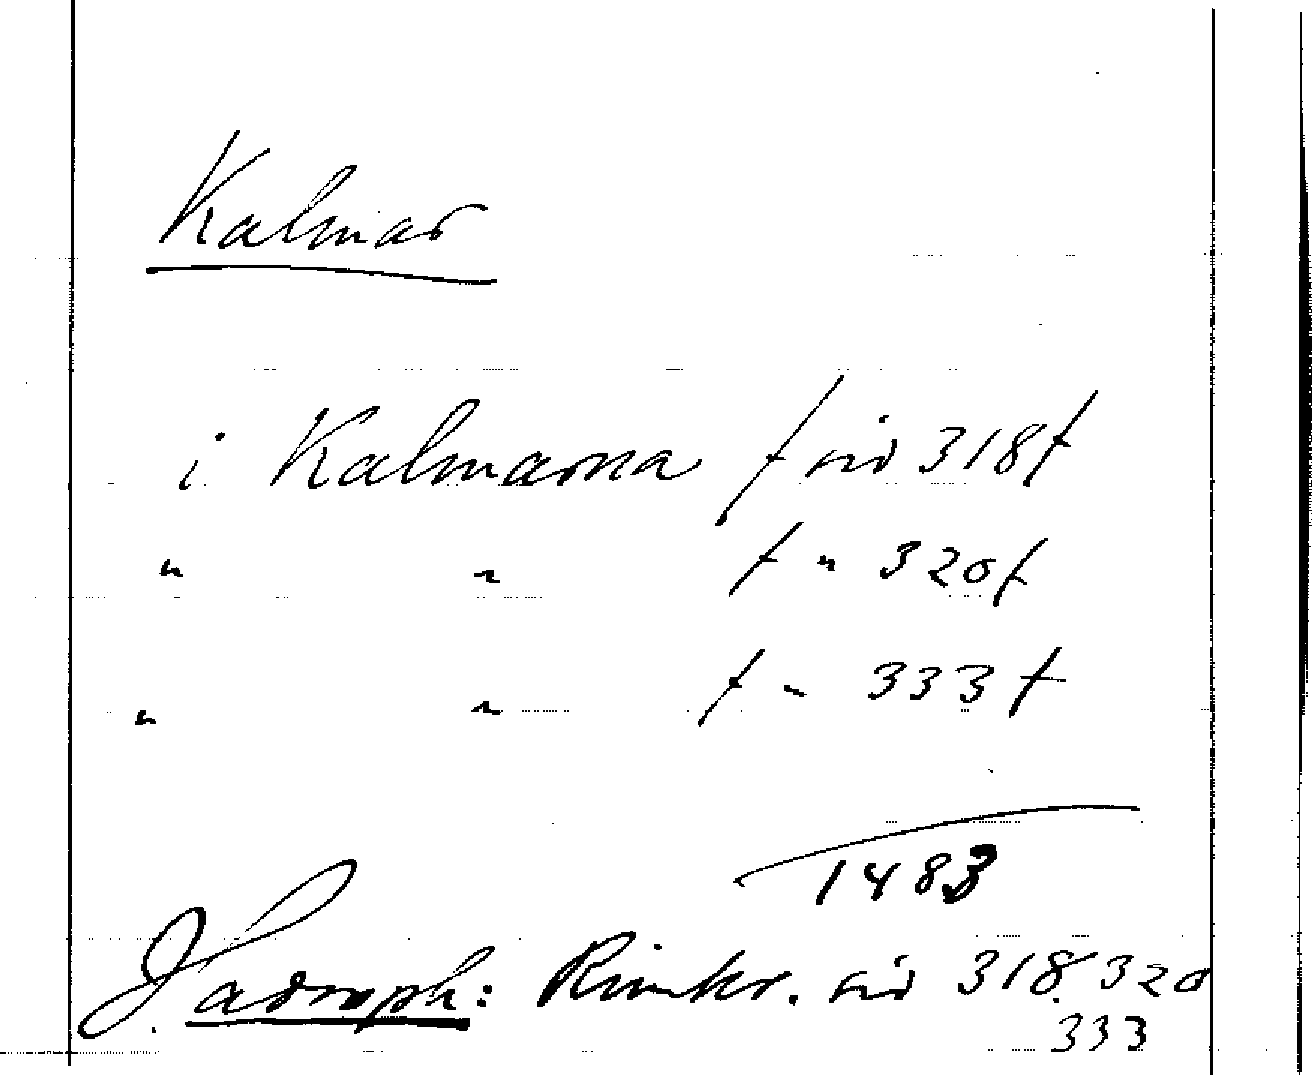 Kalmar
i Kalmarna f sid 318 f
" " f " 320 f
" " f " 333 f
1483
Hadorph: Rimkr. sid 318. 320
333